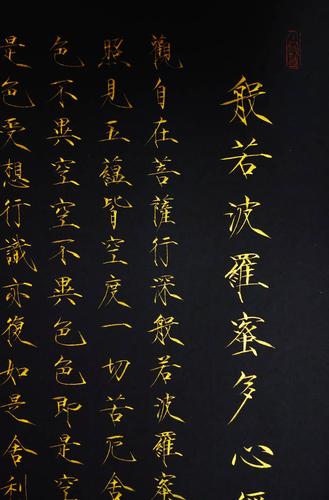 般若波羅蜜多心經
觀自在菩薩行深般若波羅蜜
照見五蘊皆空度一切苦厄舍
色不異空空不異色色即是空
是色受想行識亦復如是舍利